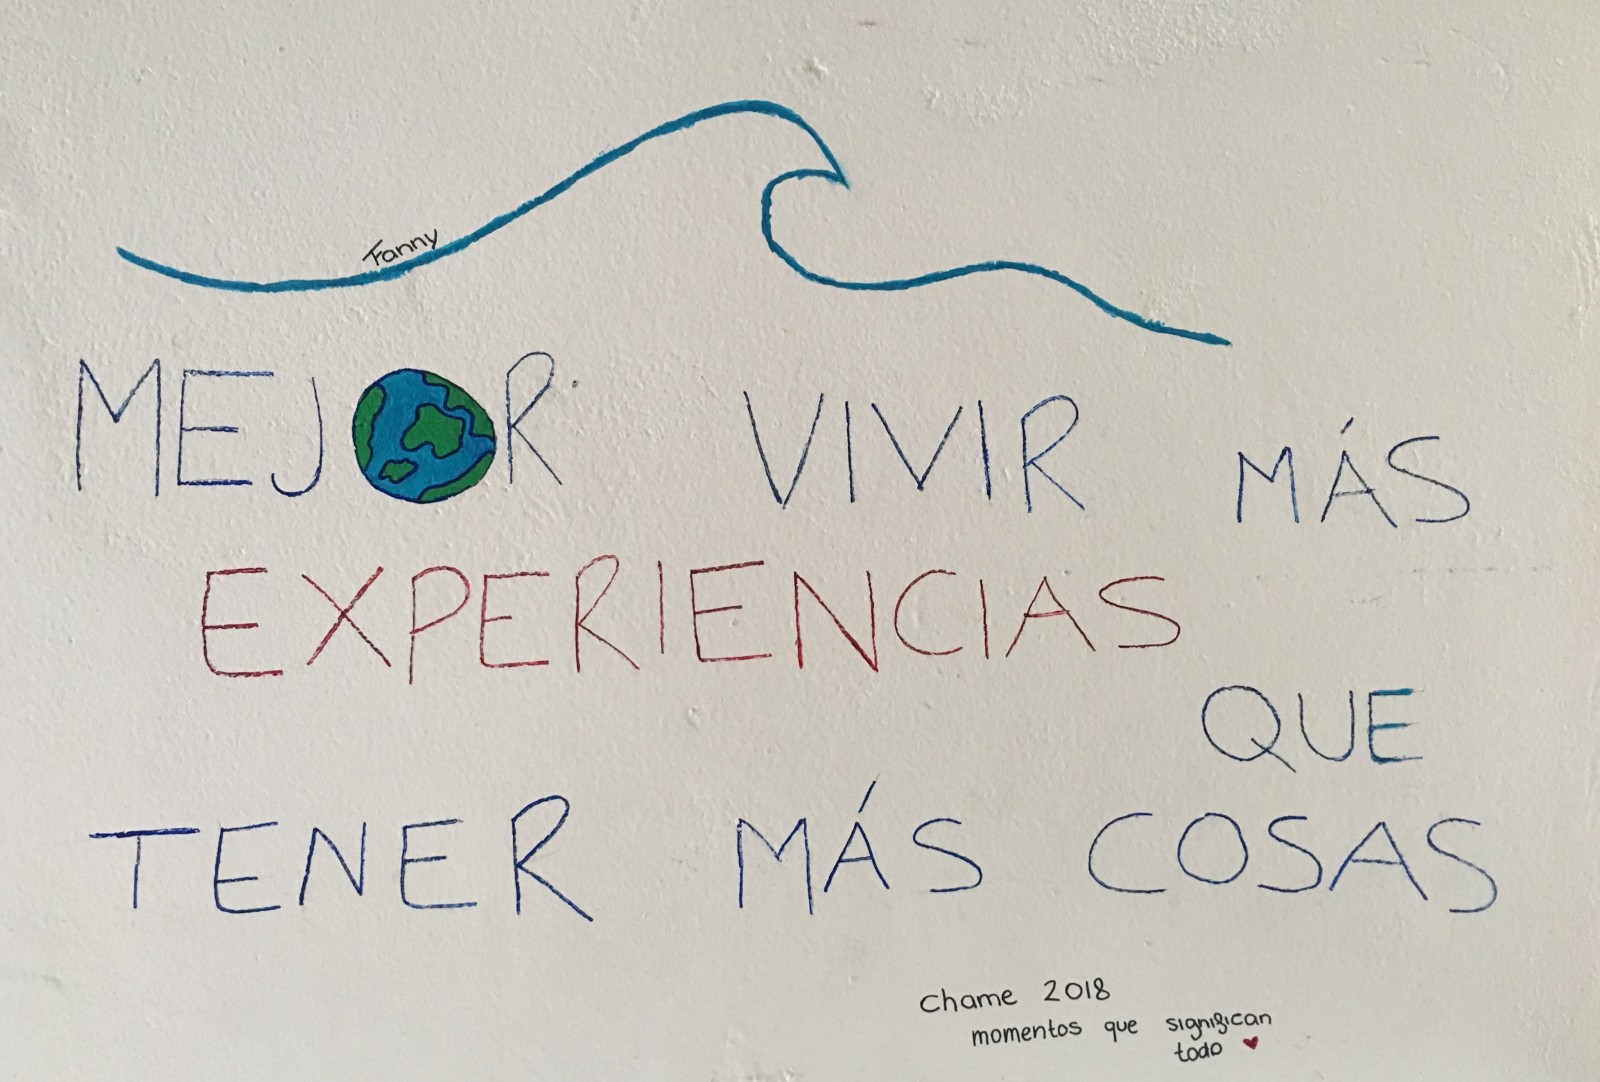 Fanny
MEJOR VIVIR MÁS
EXPERIENCIAS
QUE
TENER MÁS COSAS
Chame 2018
momentos que significan
todo